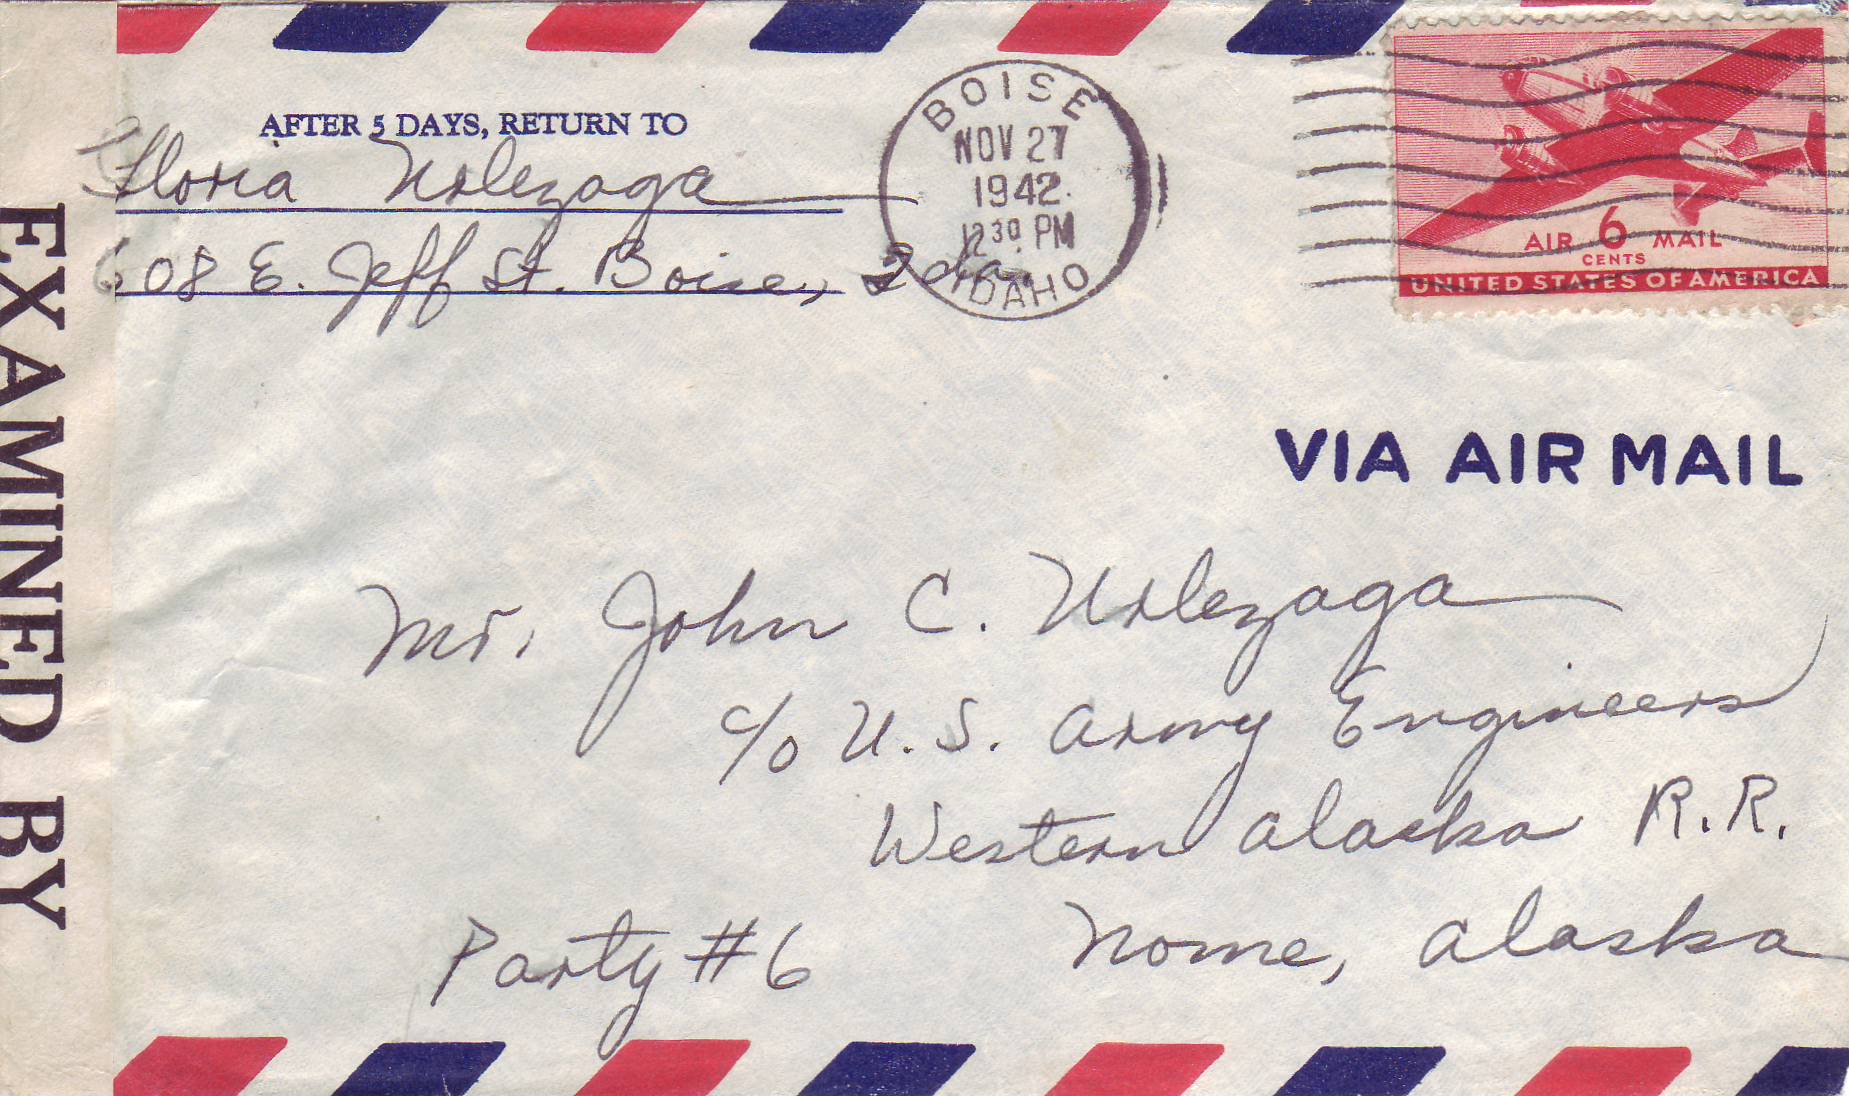 AFTER 5 DAYS, RETURN TO
Gloria Urlezaga
608 E. Jeff St. Boise, Ida.
BOISE
NOV 27
1942
12 30 PM
IDAHO
AIR 6 MAIL
CENTS
UNITED STATES OF AMERICA
VIA AIR MAIL
Mr. John C. Urlezaga
c/o U. S. Army Engineers
Western Alaska R.R.
Party #6 Nome, Alaska
EXAMINED BY